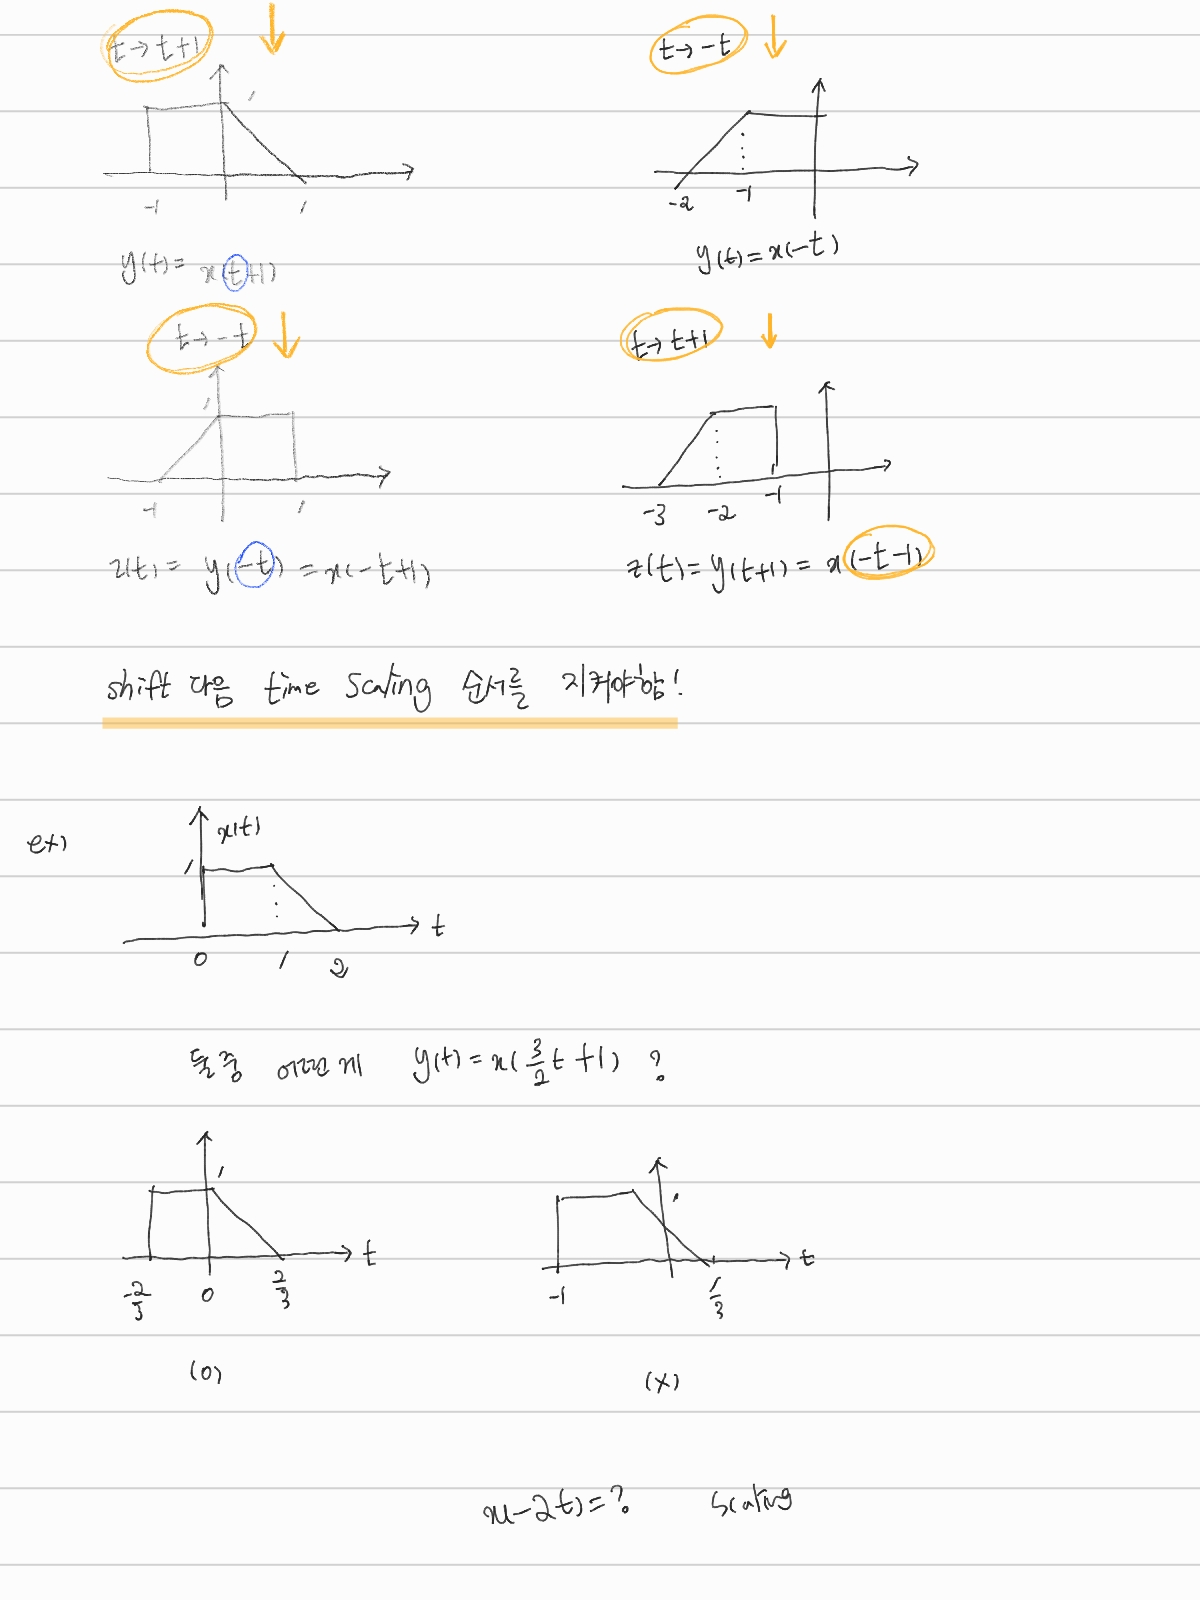 t→t+1 ↓
1
-1 1
y(t)= x(t+1)
t→-t ↓
1
-1 1
z(t)= y(-t) = x(-t+1)
t→-t ↓
-2 -1
y(t)=x(-t)
t→t+1 ↓
-3 -2 -1
z(t)=y(t+1)= x(-t-1)
shift 다음 time scaling 순서를 지켜야함!
ex)
x(t)
1
t
0 1 2
둘중 어떤게 y(t)=x(3/2t+1) ?
1
t
-2/3 0 2/3
(O)
t
-1 1/3
(X)
x(-2t)=? scaling